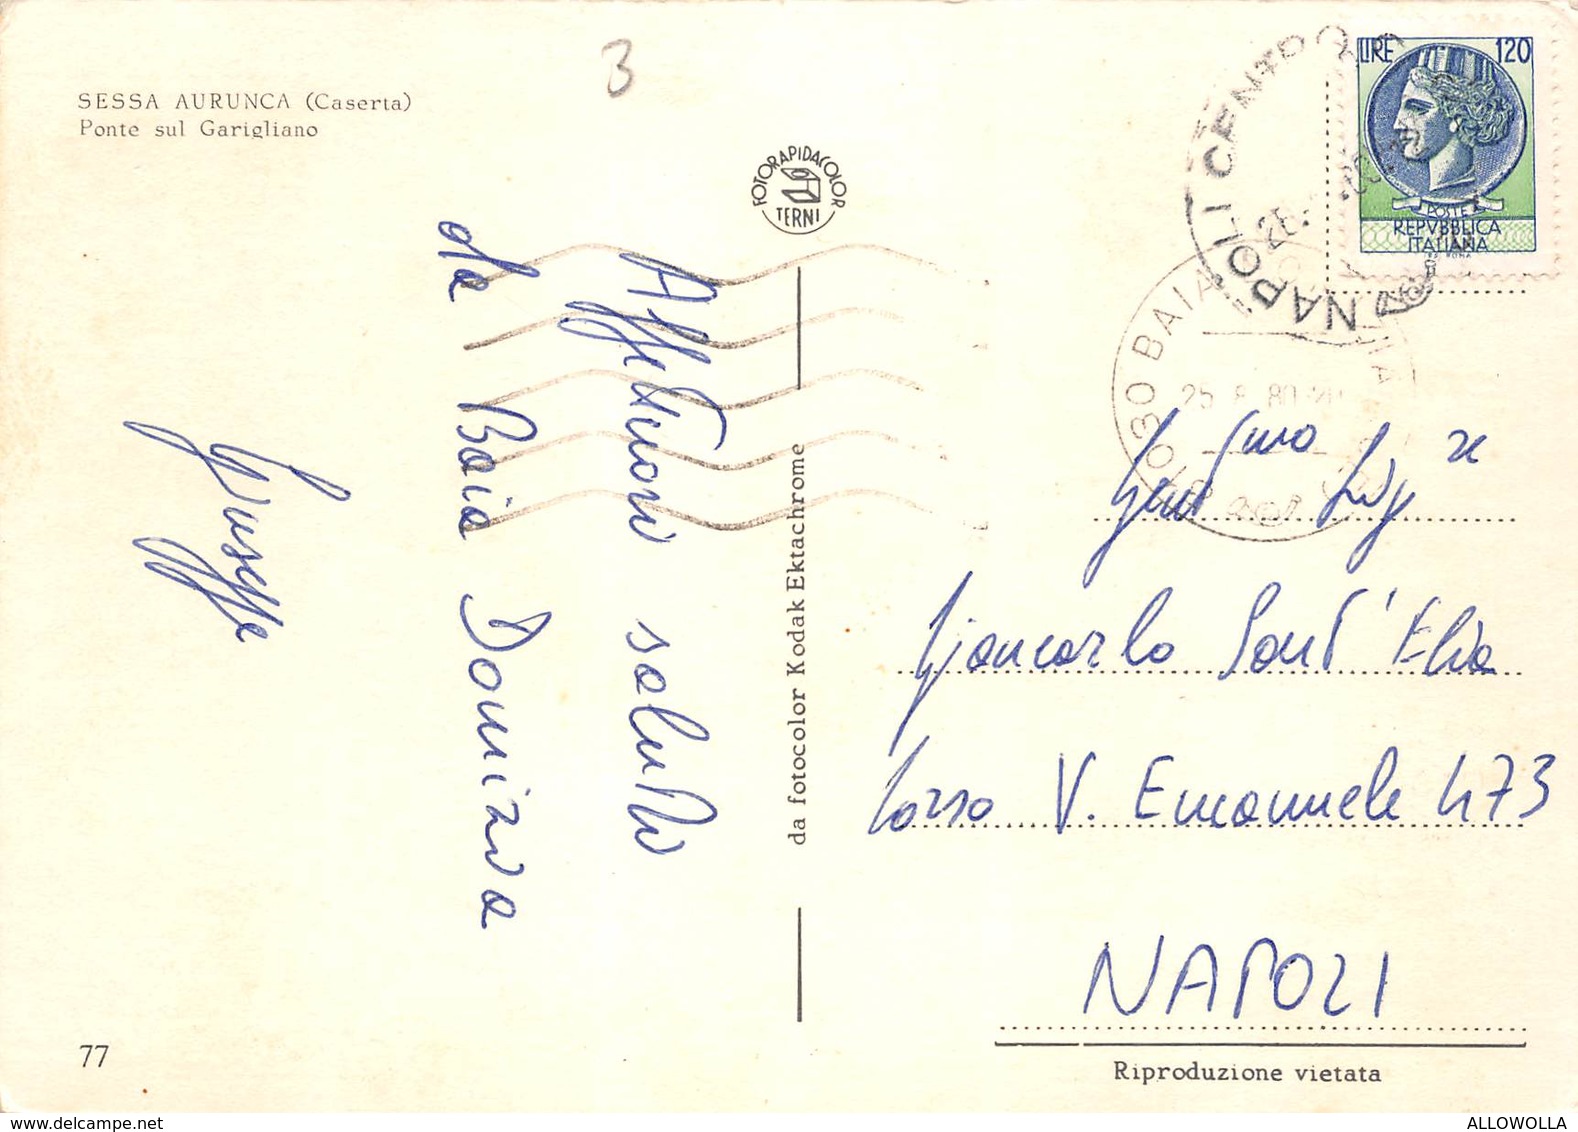 SESSA AURUNCA (Caserta)
Ponte sul Garigliano
3
FOTORAPIDACOLOR
TERNI
Affettuosi saluti
da Baia Domizia
Giuseppe
da fotocolor Kodak Ektachrome
LIRE 120
POSTE
REPVBBLICA
ITALIANA
NAPOLI CENTRO
26.
030 BAIA
25 8 80
Gent.ma Sig.
Giancarlo Sant'Elia
Corso V. Emanuele 473
NAPOLI
77
Riproduzione vietata
www.delcampe.net
ALLOWOLLA